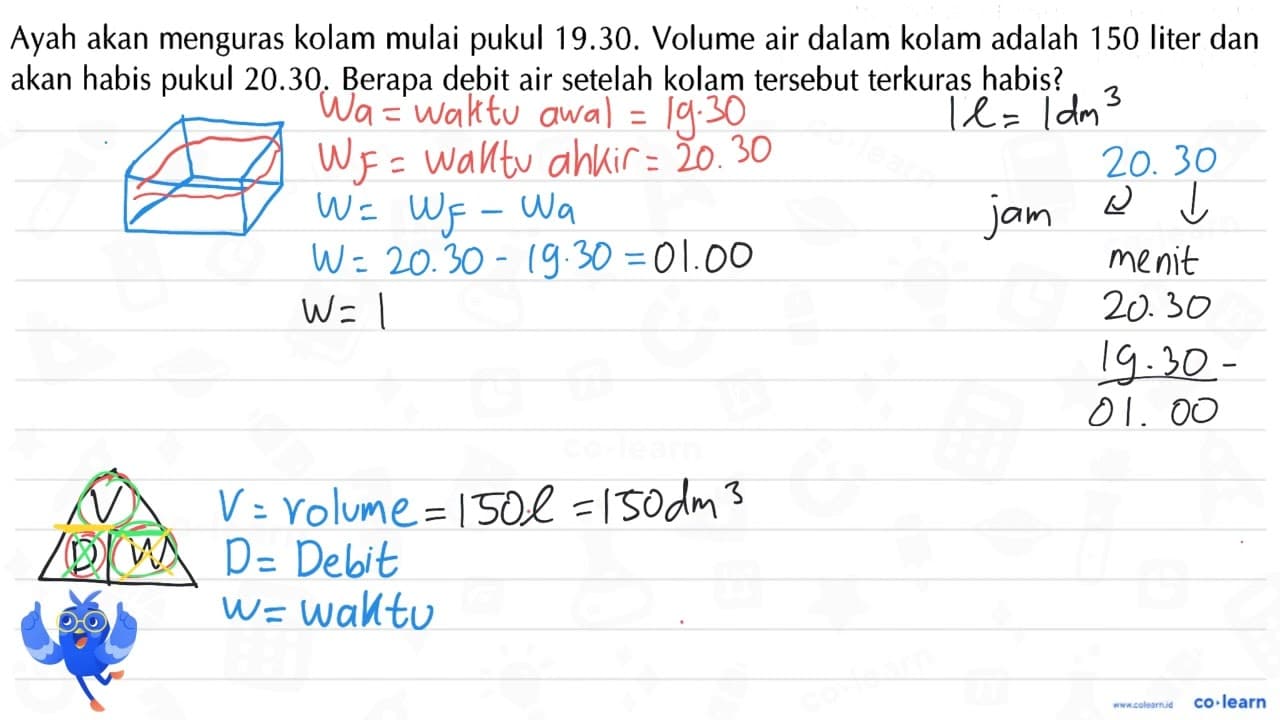 Ayah akan menguras kolam mulai pukul 19.30. Volume air dalam kolam adalah 150 liter dan
akan habis pukul 20.30. Berapa debit air setelah kolam tersebut terkuras habis?
Wa = waktu awal = 19.30
WF = waktu ahkir = 20.30
W = WF - Wa
W = 20.30 - 19.30 = 01.00
W = 1
1l = 1dm³
20.30
jam
menit
20.30
19.30 -
01.00
V
D W
V = volume = 150l = 150dm³
D = Debit
W = waktu
co-learn
www.colearn.id co·learn